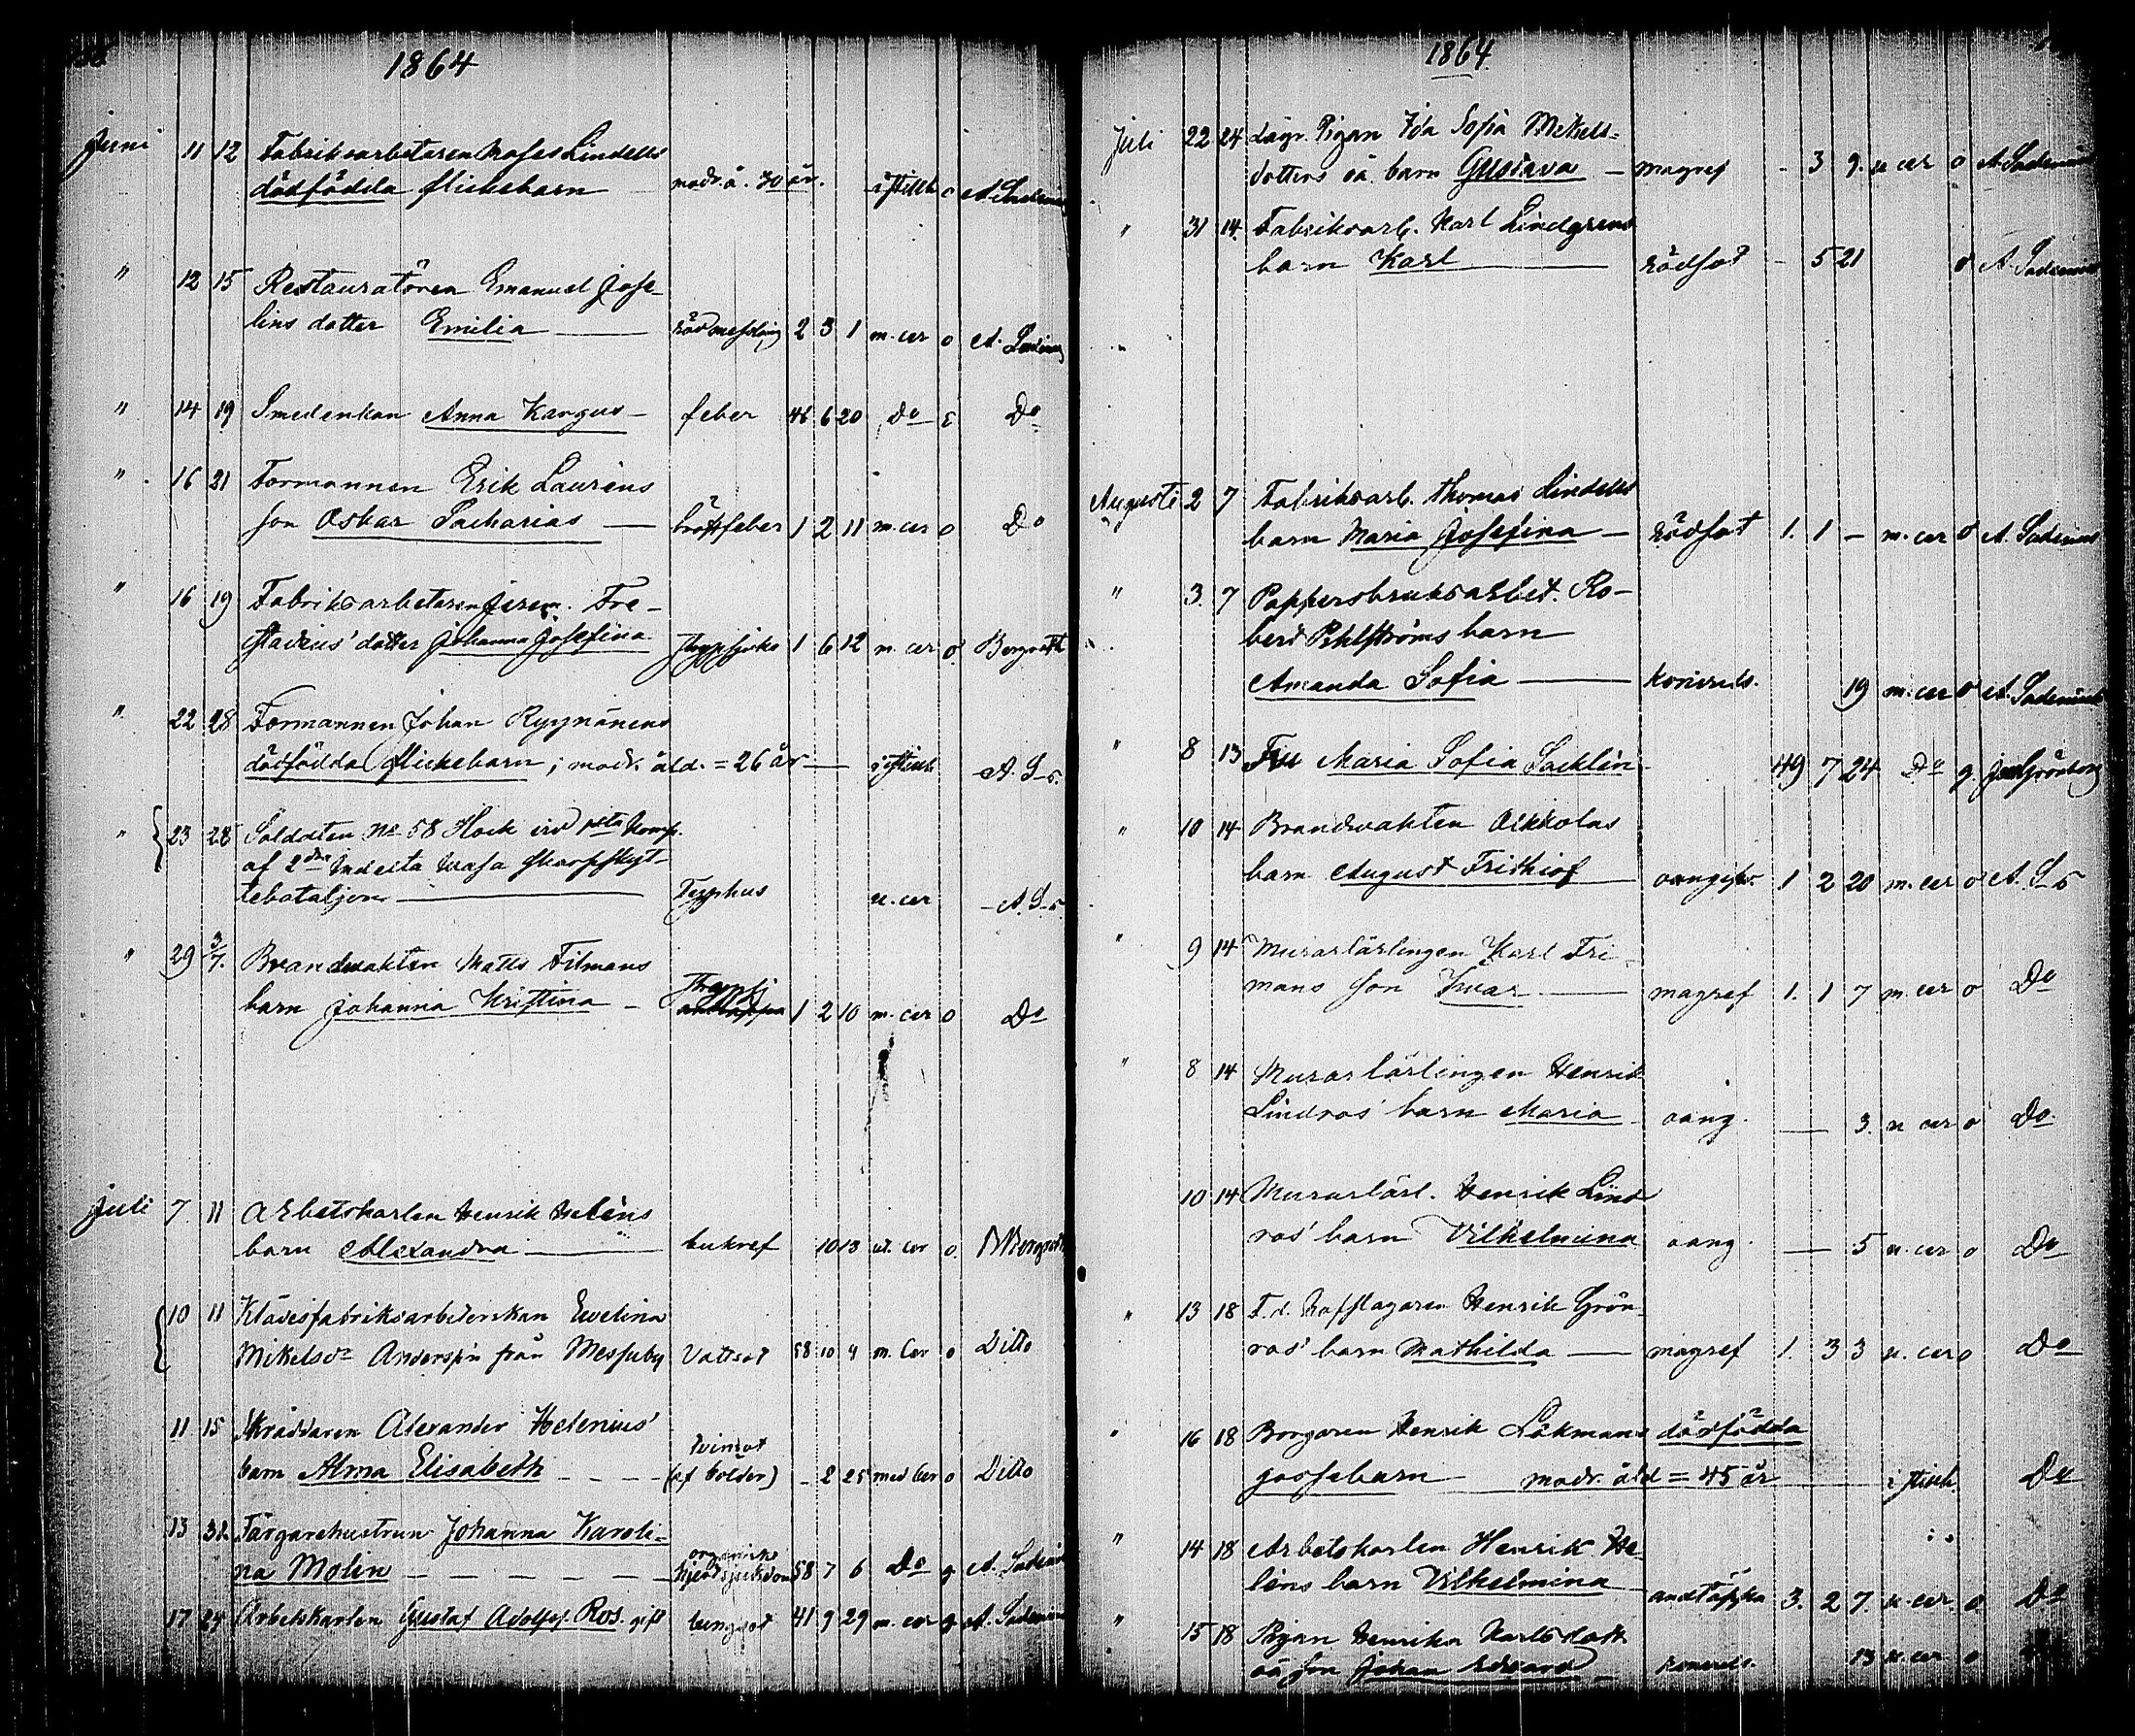 1864
Juni 11 12 Fabriksarbetaren Moses Lindells
dödfödda flickebarn modr. å. 30 år. i stillh o A. Sadenius
" 12 15 Restauratören Emanuel Jose-
lins dotter Emilia rödmessling 2 3 1 m. cer o A. Sadenius
" 14 19 Smedenkan Anna Kargus feber 46 6 20 Do E Do
" 16 21 Formannen Erik Laurins
son Oskar Sacharias bröstfeber 1 2 11 m. cer o Do
" 16 19 Fabriksarbetaren Jerem. Fre-
stadius' dotter Johanna Josefina 1 6 12 m. cer o
" 22 28 Formannen Johan Ryynänens
dödfödda flickebarn; modr. åld. = 26 år i stillh A. S-s.
" 23 28 Soldaten No 58 Hock vid 1sta Komp.
af 2dra Indelta Wasa Skarpskyt-
tebataljon Typhus u. cer A. S-s
" 29 3/7. Brandvakten Matts Filmans
barn Johanna Kristina 1 2 10 m. cer o Do
Juli 7. 11 Arbetskarlen Henrik Heléns
barn Alexandra bukref 10 13 ut. cer o.
10 11 Klädesfabriksarbeterskan Evelina
Mikelsdr Andersin från Messuby Vattsot 58 10 9 m. Cer o Ditto
11 15 Skräddaren Alexander Helenius'
barn Alma Elisabeth (af bölder) - 2 25 med Cer o Ditto
13 31. Färgarehustrun Johanna Karoli-
na Molin organisk hjertsjukdom 58 7 6 Do g A. Sadenius
17 24 Arbetskarlen Gustaf Adolf Ros. gift lungsot 41 9 29 m. cer g A. Sadenius
1864
Juli 22 24 Pigan Ida Sofia Mikels-
dotters oä. barn Gustava magref - 3 9. u cer o A. Sadenius
" 31 14. Fabriksarb. Karl Lindgrens
barn Karl rödsot - 5 21 o A. Sadenius
Augusti 2 7 Fabriksarb. Thomas Lindells
barn Maria Josefina rödsot 1. 1 - m. cer o A. Sadenius
" 3. 7 Pappersbruksarbet. Ro-
bert Pihlströms barn
Amanda Sofia konvuls. 19 m. cer o A. Sadenius
" 8 13 Fru Maria Sofia Sacklin 49 7 24 Do g.
" 10 14 Brandvakten Aikkolas
barn August Fridhiof oangifv. 1 2 20 m. cer o A. S-s
" 9 14 Murarlärlingen Karl Fri-
mans son Ivar magref 1. 1 7 m. cer o Do
" 8 14 Murarlärlingen Henrik
Lindros' barn Maria oang. 3. u cer o Do
10 14 Murarlärl. Henrik Lind
ros' barn Vilhelmina oang. 5 u. cer o Do
" 13 18 F.d. Henrik Grön-
ros' barn Mathilda magref 1. 3 3 u. cer o Do
" 16 18 Borgaren Henrik Läkmans dödfödda
gossebarn modr. åld = 45 år i stillh Do
" 14 18 Arbetskarlen Henrik He-
léns barn Vilhelmina andtäppa 3. 2 7. u. cer. o Do
" 15 18 Pigan Henrika Karlsdott
oä son Johan Edvard konvuls. 13 u. cer o